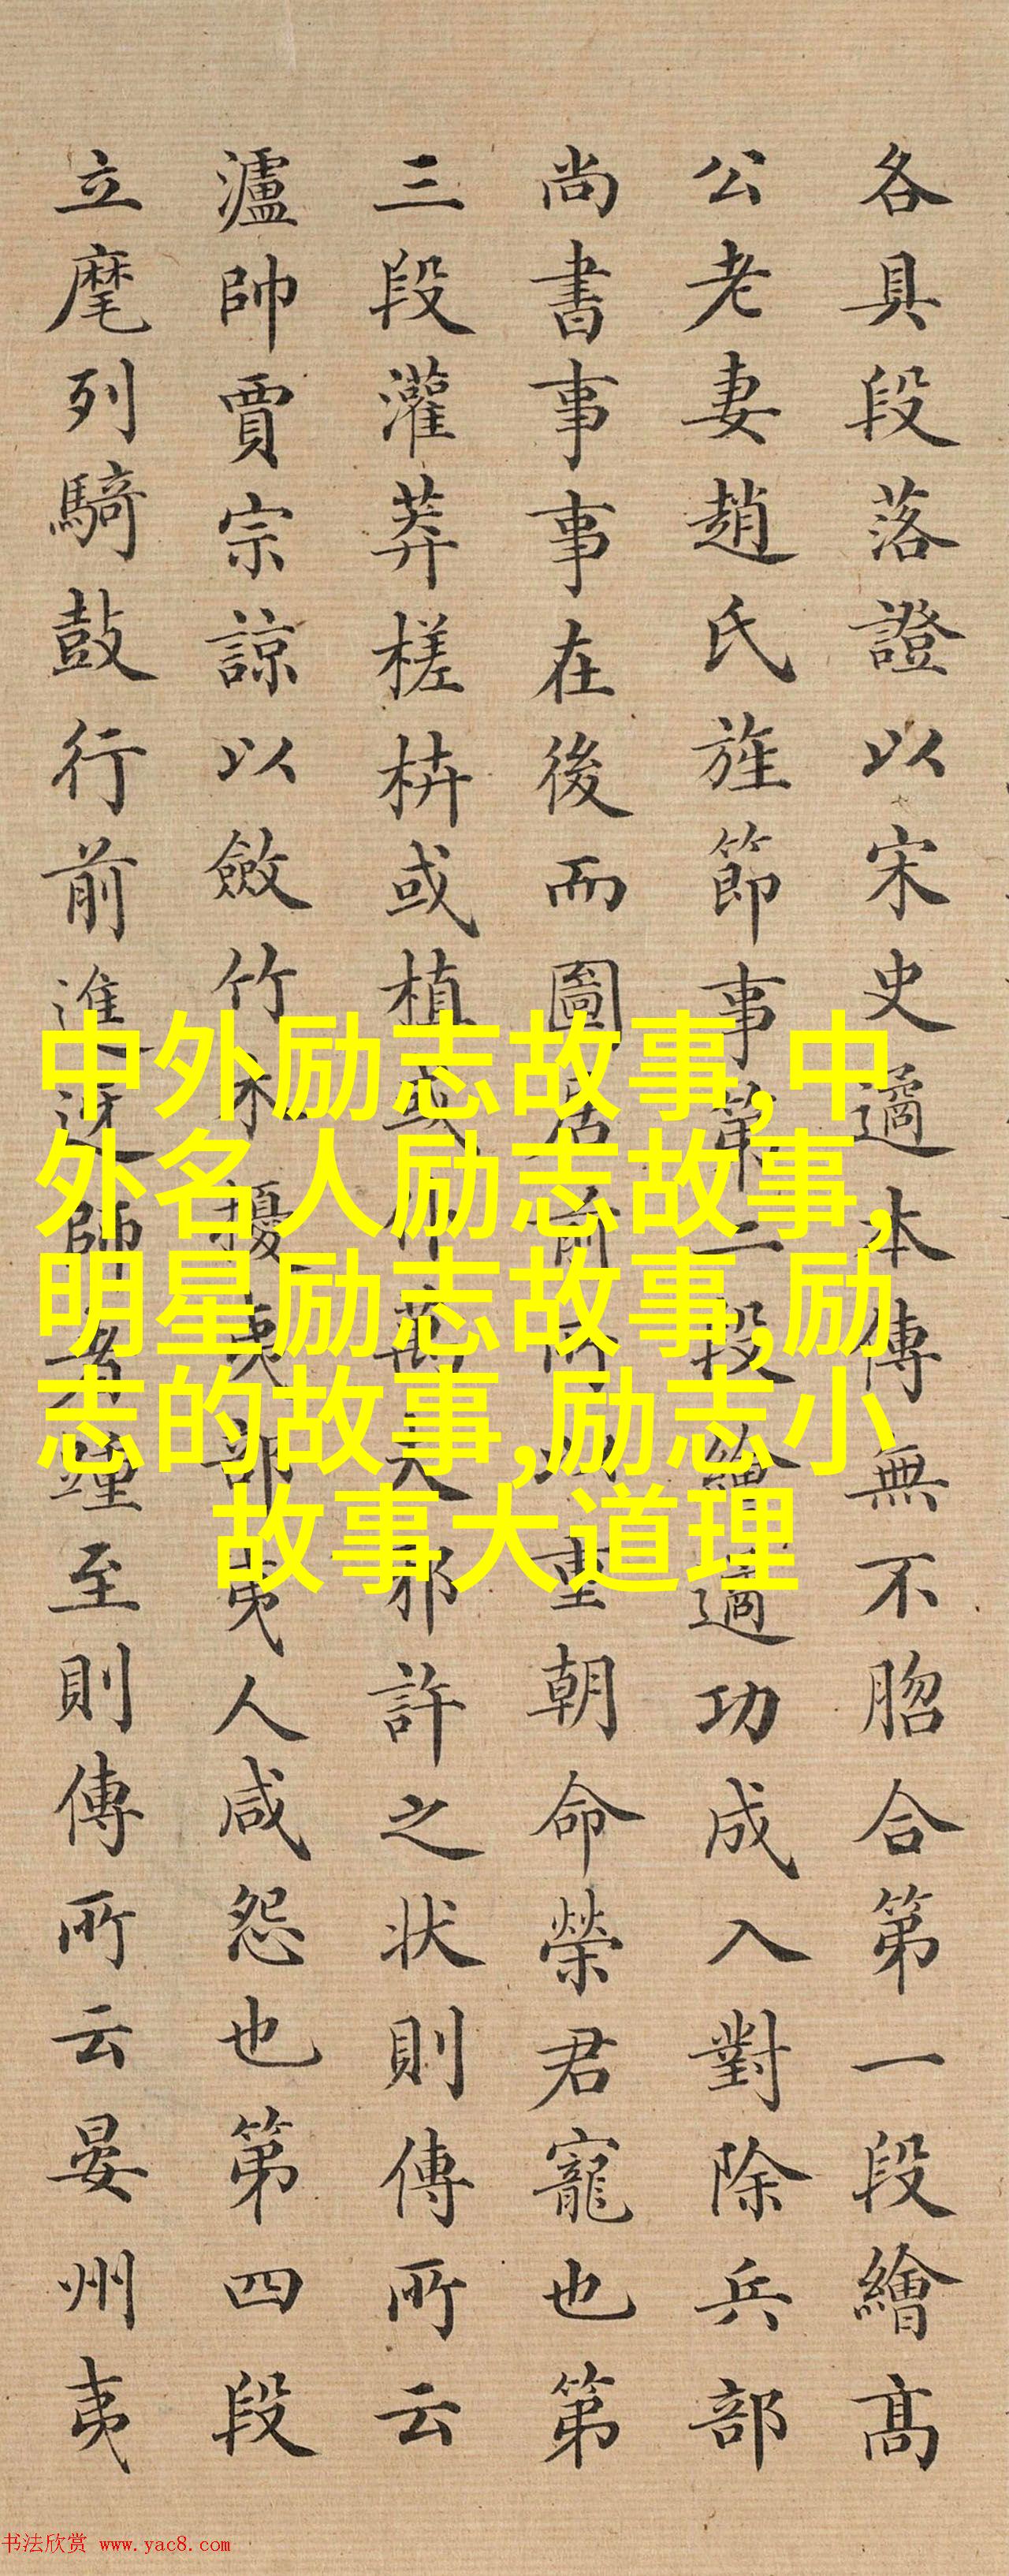 各具段落證以宋史遹本傳無不脗合第一段繪高
公老妻趙氏旌節事第二段繪遹功成入對除兵部
尚書事事在後而圖居前所以重朝命榮君寵也第
三段灌莽槎枿或植或仆萬夫邪許之狀則傳所云
瀘帥賈宗諒以斂竹木擾夷部夷人咸怨也第四段
立麾列騎鼓行前進迓師者踵至則傳所云晏州夷
中外励志故事,中
外名人励志故事,
明星励志故事,励
志的故事,励志小
故事大道理
书法欣赏 www.yac8.com